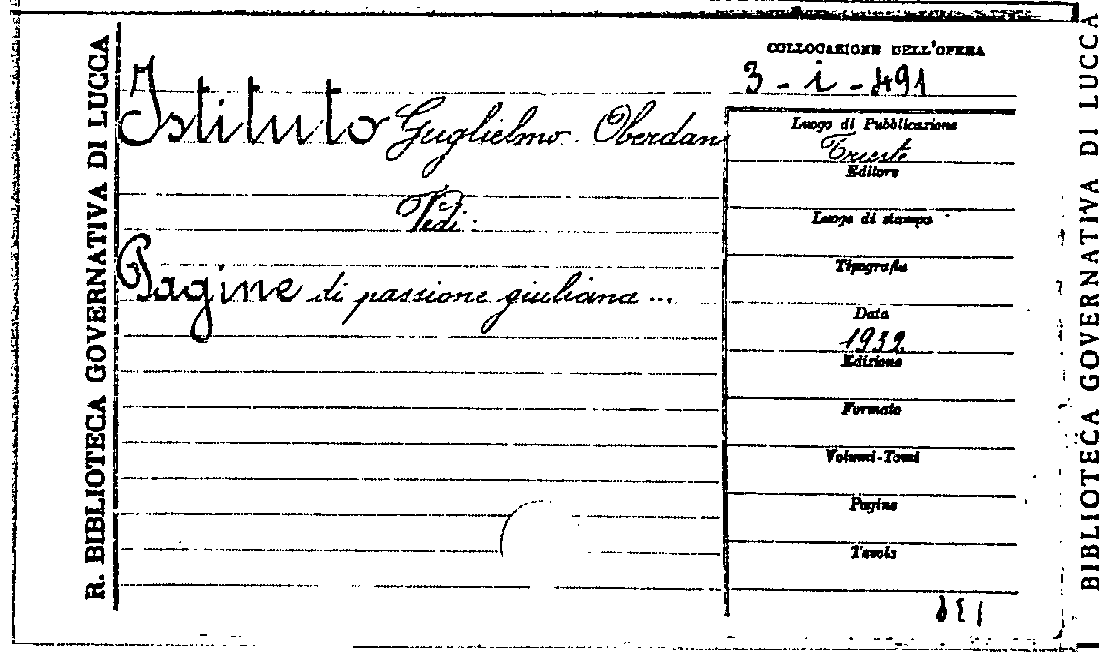 R. BIBLIOTECA GOVERNATIVA DI LUCCA
Istituto Guglielmo Oberdan
Vedi:
Pagine di passione giuliana ...
COLLOCAZIONE DELL'OPERA
3 - i - 491
Luogo di Pubblicazione
Trieste
Editore
Luogo di stampa
Tipografia
Data
1932
Edizione
Formato
Volumi-Tomi
Pagine
Tavole
BIBLIOTECA GOVERNATIVA DI LUCCA